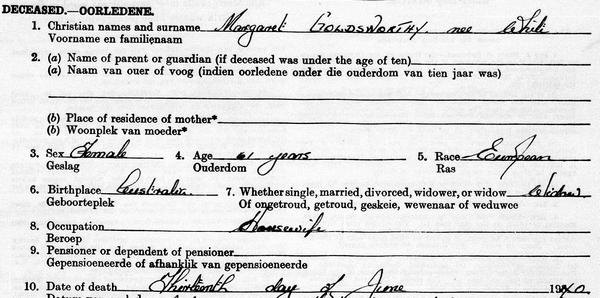 DECEASED.—OORLEDENE.
1. Christian names and surname Margaret GOLDSWORTHY. nee White
Voornaam en familienaam
2. (a) Name of parent or guardian (if deceased was under the age of ten)
(a) Naam van ouer of voog (indien oorledene onder die ouderdom van tien jaar was)
(b) Place of residence of mother*
(b) Woonplek van moeder*
3. Sex Female 4. Age 61 years 5. Race European
Geslag Ouderdom Ras
6. Birthplace Australia. 7. Whether single, married, divorced, widower, or widow Widow.
Geboorteplek Of ongetroud, getroud, geskeie, wewenaar of weduwee
8. Occupation Housewife
Beroep
9. Pensioner or dependent of pensioner
Gepensioeneerde of afhanklik van gepensioeneerde
10. Date of death Thirteenth day of June 1940.